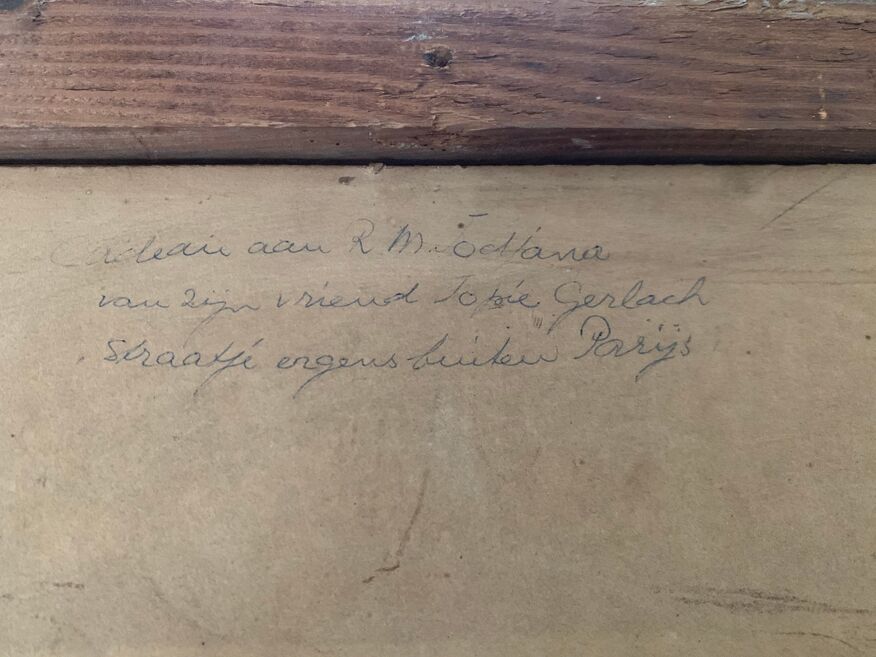 Cadeau aan R M.
van zijn vriend Topie Gerlach
Straatje ergens buiten Parijs